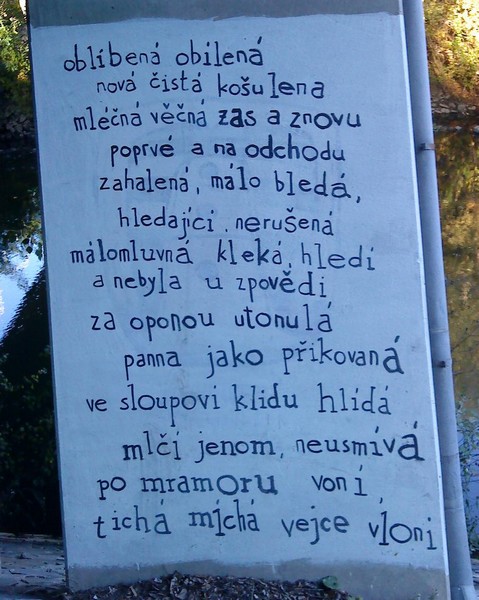 oblíbená obilená
nová čistá košulena
mléčná věčná zas a znovu
poprvé a na odchodu
zahalená, málo bledá,
hledající, nerušená
málomluvná kleká, hledí
a nebyla u zpovědi
za oponou utonulá
panna jako přikovaná
ve sloupovi klidu hlídá
mlčí jenom, neusmívá
po mramoru voní,
tichá míchá vejce vloni